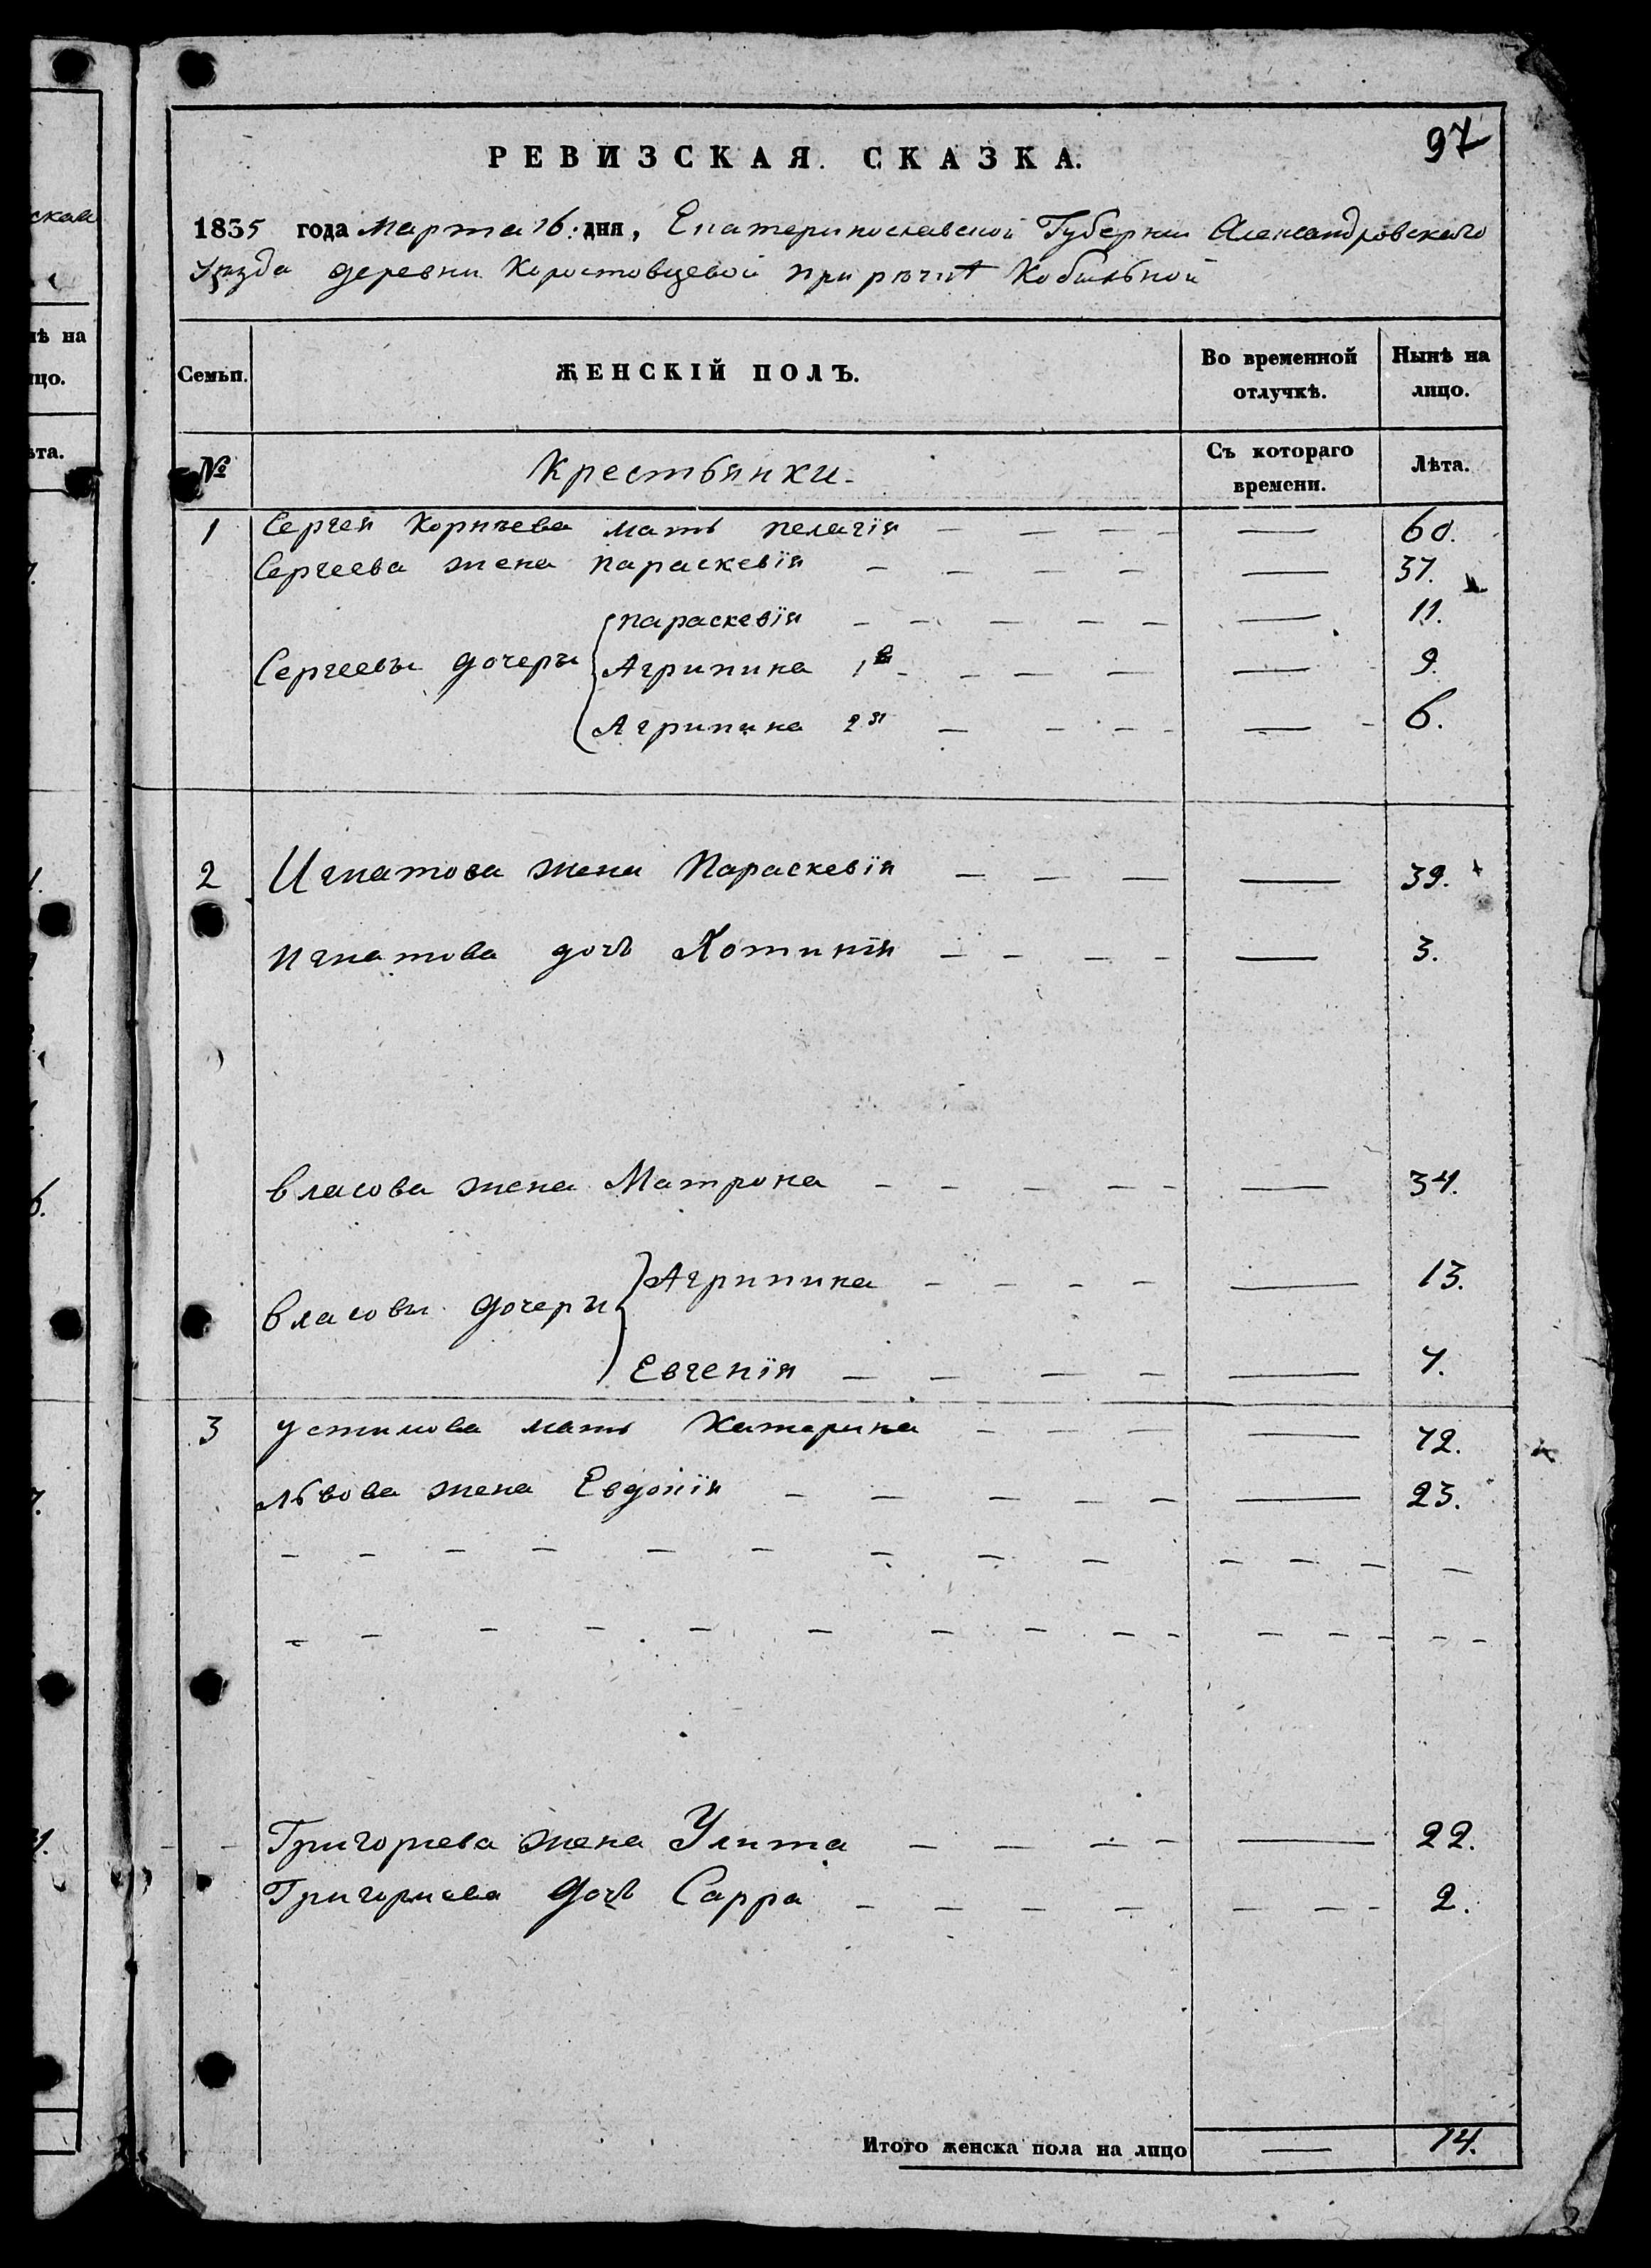 97
РЕВИЗСКАЯ. СКАЗКА.
1835 года марта 16. дня, Екатеринославской Губернии Александровского
уѣзда деревни Коростовцевой при рѣчкѣ Кобильной
Семьи.
ЖЕНСКІЙ ПОЛЪ.
Во временной отлучкѣ.
Нынѣ на лицо.
№
Крестьянки.
Съ котораго времени.
Лѣта.
1 Сергея Корнѣева мать пелагія — 60.
Сергеева жена параскевія — 37.
параскевія — 11.
Сергеевы дочеры Агрипина 1я — 9.
Агрипина 2я — 6.
2 Игнатова жена Параскевія — 39.
игнатова дочь Хотинія — 3.
власова жена Матрона — 34.
Агрипина — 13.
власовы дочеры
Евгенія — 4.
3 устимова мать Катерина — 72.
львова жена Евдокія — 23.
Григориева жена Улита — 22.
Григориева дочь Сарра — 2.
Итого женска пола на лицо — 14.